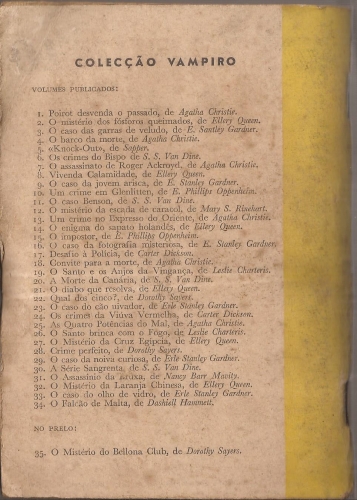 COLECÇÃO VAMPIRO
VOLUMES PUBLICADOS:
1. Poirot desvenda o passado, de Agatha Christie.
2. O mistério dos fósforos queimados, de Ellery Queen.
3. O caso das garras de veludo, de E. Santley Gardner.
4. O barco da morte, de Agatha Christie.
5. «Knock-Out», de Sapper.
6. Os crimes do Bispo de S. S. Van Dine.
7. O assassinato de Roger Ackroyd, de Agatha Christie.
8. Vivenda Calamidade, de Ellery Queen.
9. O caso da jovem arisca, de E. Stanley Gardner.
10. Um crime em Glenlitten, de E. Phillips Oppenheim.
11. O caso Benson, de S. S. Van Dine.
12. O mistério da escada de caracol, de Mary S. Rinehart.
13. Um crime no Expresso do Oriente, de Agatha Christie.
14. O enigma do sapato holandês, de Ellery Queen.
15. O impostor, de E. Phillips Oppenheim.
16. O caso da fotografia misteriosa, de E. Stanley Gardner,
17. Desafio à Polícia, de Carter Dickson.
18. Convite para a morte, de Agatha Christie.
19. O Santo e os Anjos da Vingança, de Leslie Charteris.
20. A Morte da Canária, de S. S. Van Dine.
21. O diabo que resolva, de Ellery Queen.
22. Qual dos cinco?, de Dorothy Sayers.
23. O caso do cão uivador, de Erle Stanley Gardner.
24. Os crimes da Viúva Vermelha, de Carter Dickson.
25. As Quatro Potências do Mal, de Agatha Christie.
26. O Santo brinca com o Fogo, de Leslie Charteris.
27. O Mistério da Cruz Egípcia, de Ellery Queen.
28. Crime perfeito, de Dorothy Sayers.
29. O caso da noiva curiosa, de Erle Stanley Gardner.
30. A Série Sangrenta, de S. S. Van Dine.
31. O Assassínio da Bruxa, de Nancy Barr Mavity.
32. O Mistério da Laranja Chinesa, de Ellery Queen.
33. O caso do olho de vidro, de Erle Stanley Gardner.
34. O Falcão de Malta, de Dashiell Hammett.
NO PRELO:
35. O Mistério do Bellona Club, de Dorothy Sayers.